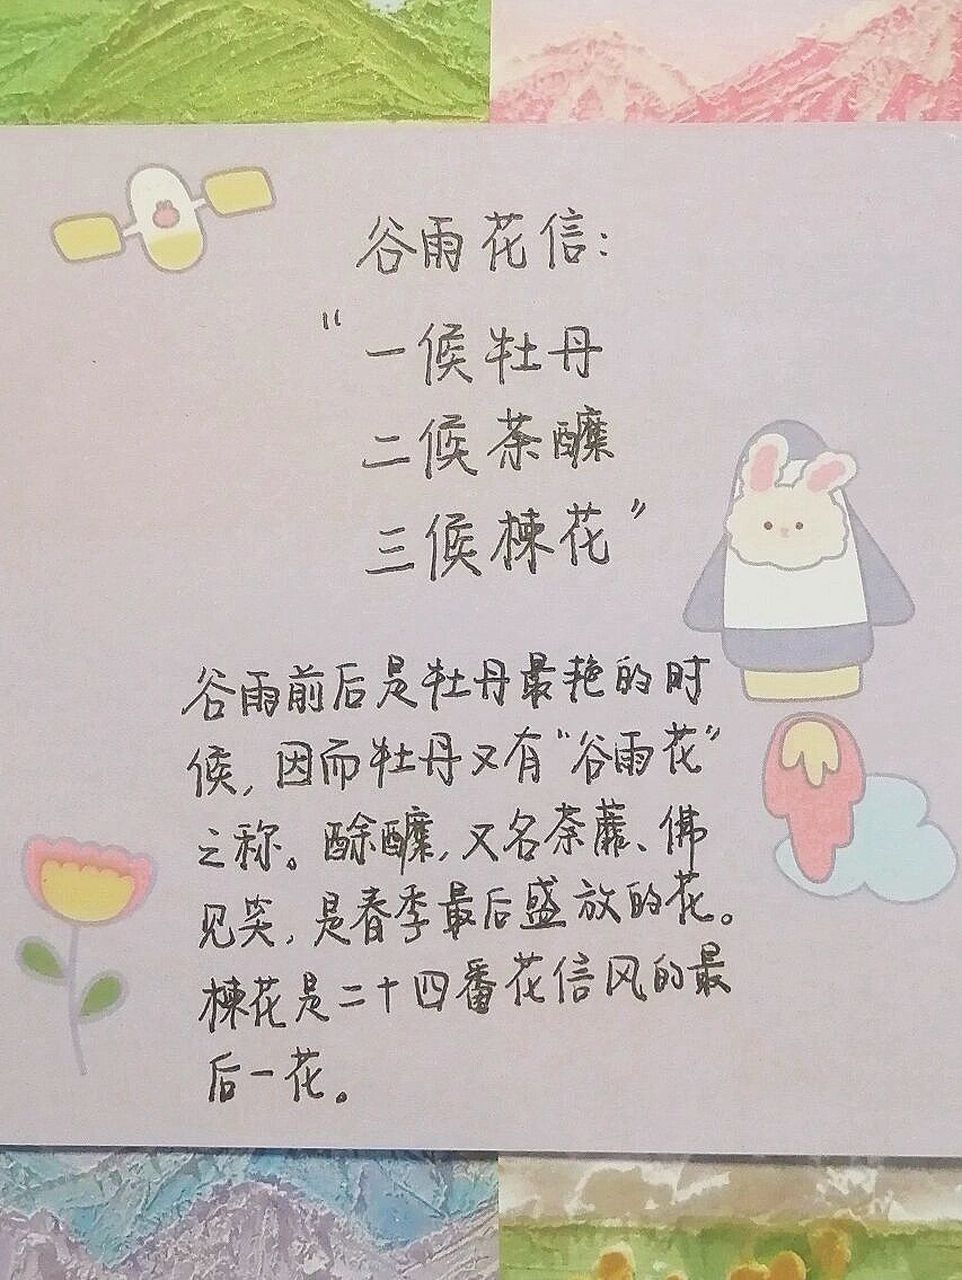 谷雨花信:
"一候牡丹
二候荼醾
三候楝花"
谷雨前后是牡丹最艳的时
候,因而牡丹又有"谷雨花"
之称。酴醾,又名荼蘼、佛
见笑,是春季最后盛放的花。
楝花是二十四番花信风的最
后一花。